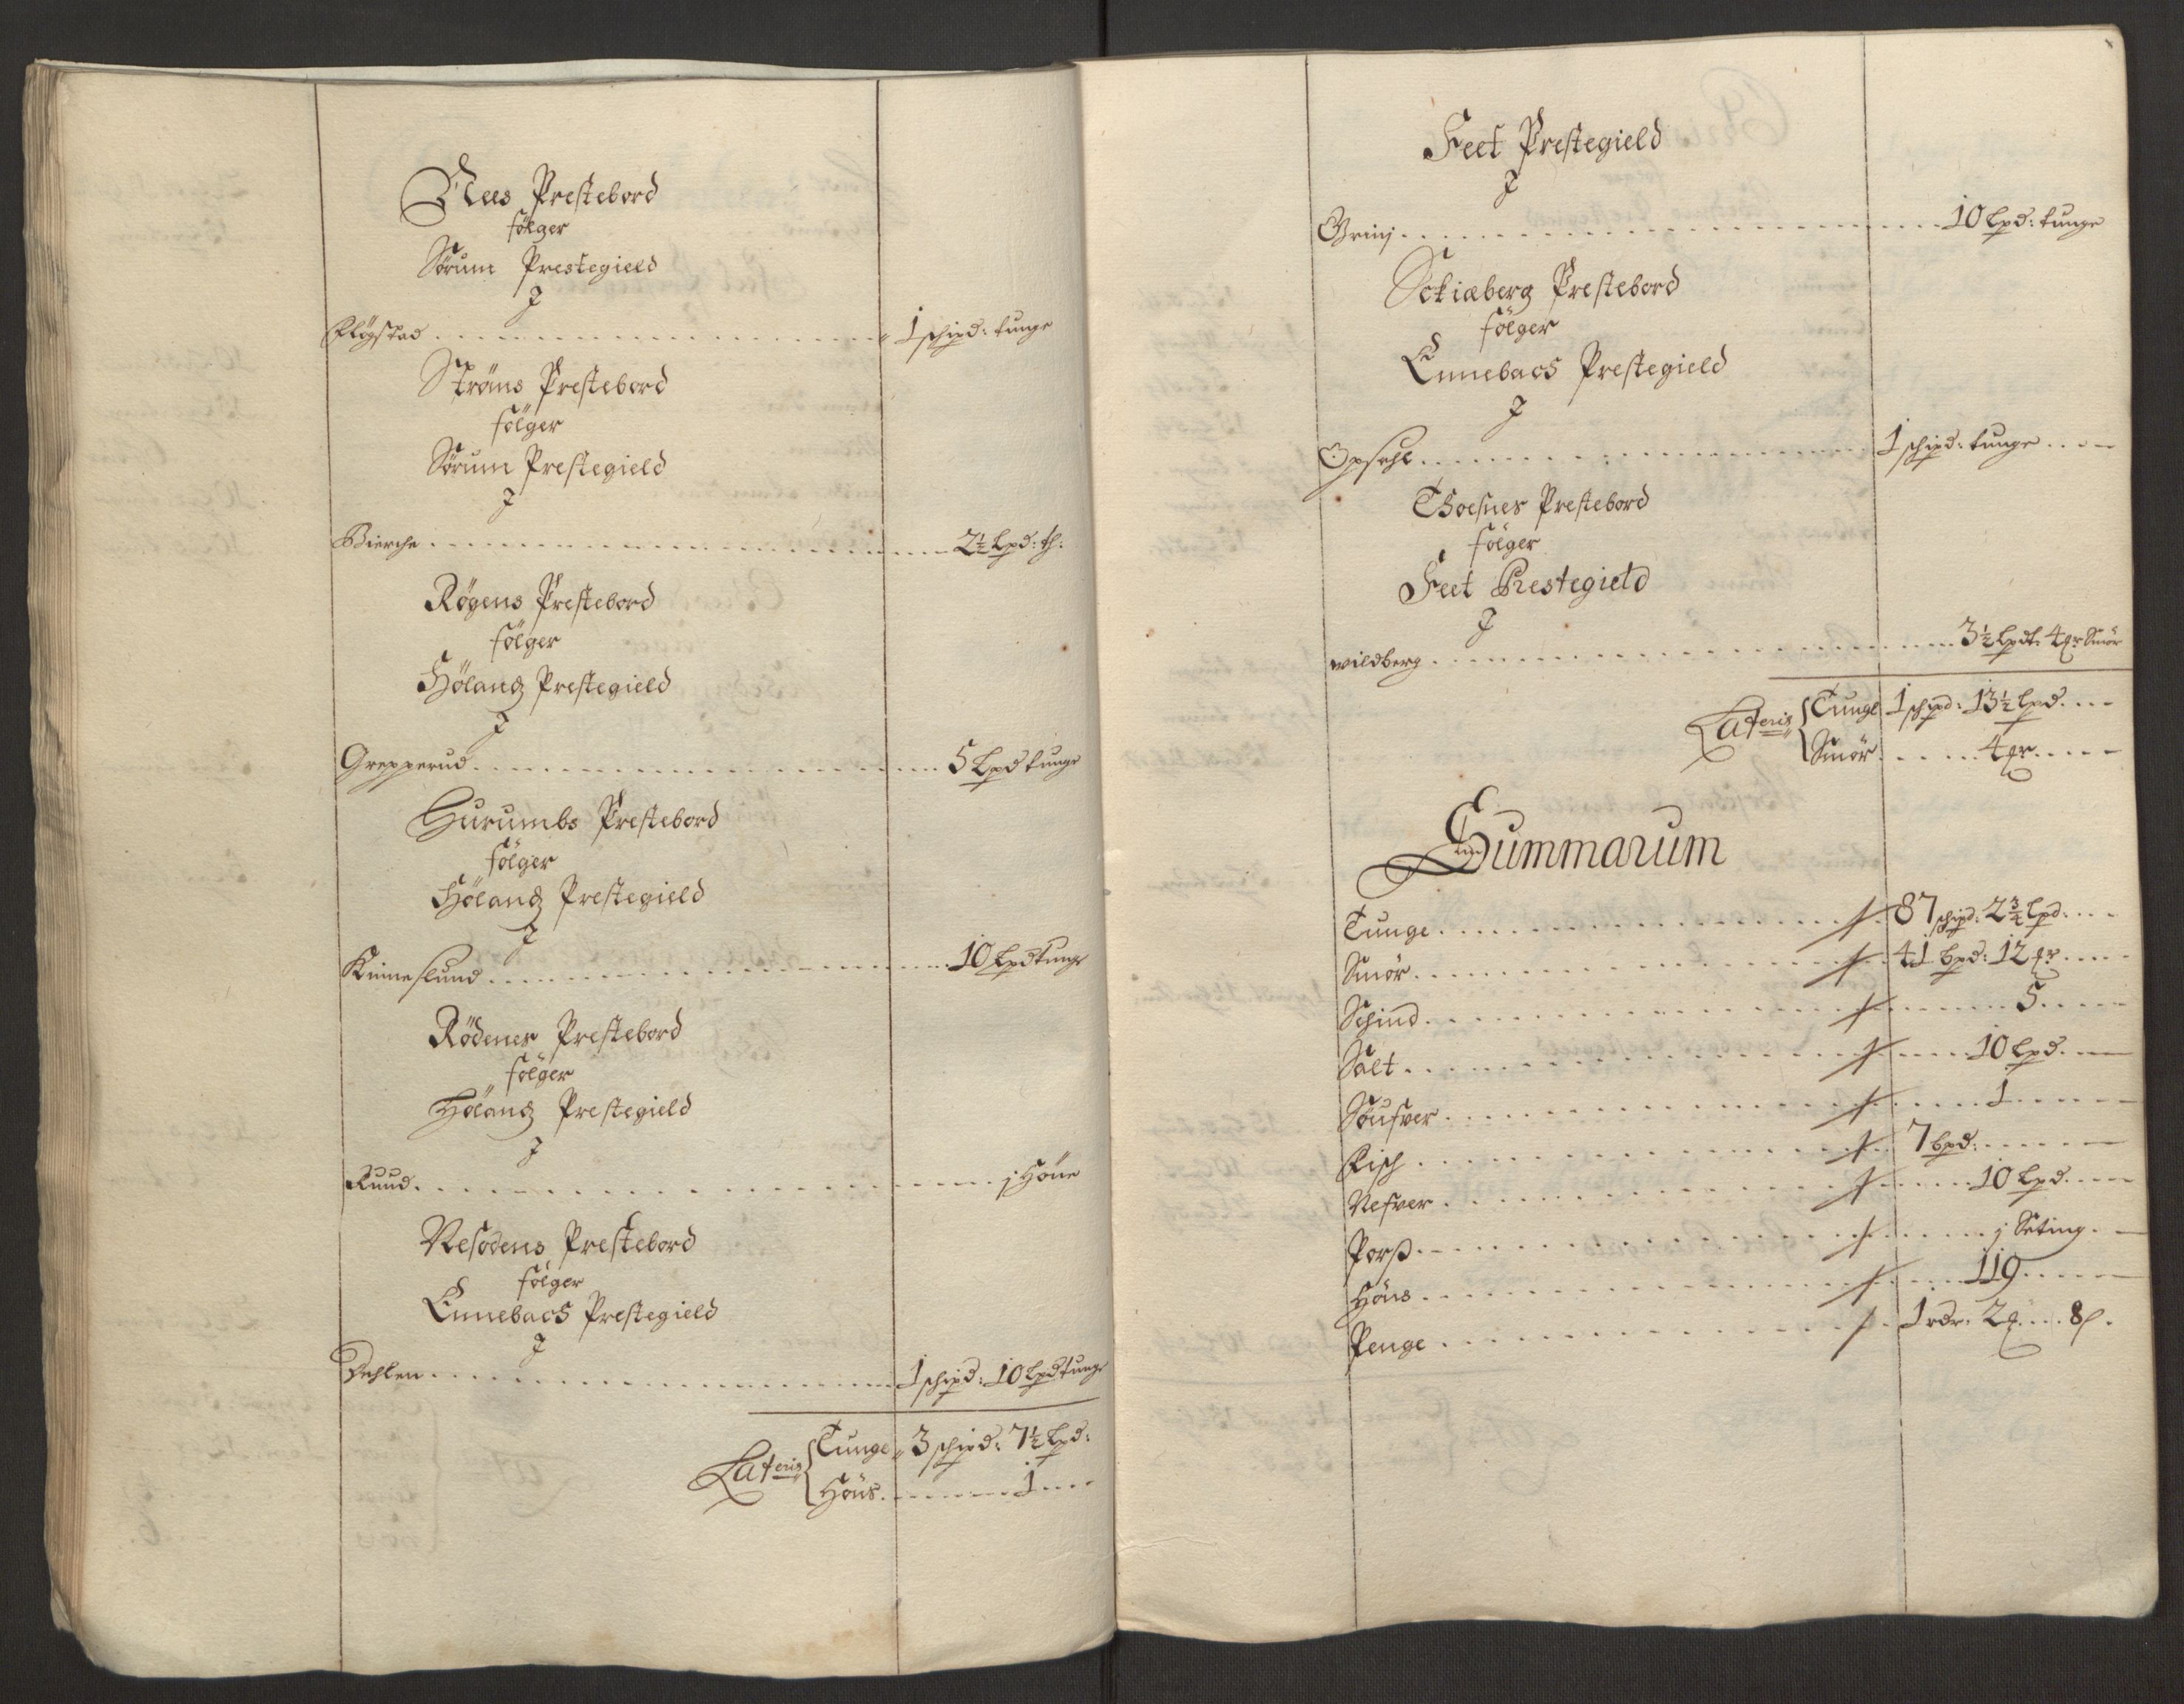 Nees Prestebord
fölger
Sörum Prestegield
J
Flögstad . . . 1 schipd: tunge
Ströms Prestebord
fölger
Sörum Prestegield
J
Bierche . . . 2½ Lpd: th:
Røgens Prestebord
fölger
Hölandz Prestegield
J
Grepperud . . . 5 Lpd tunge
Hurumbs Prestebord
fölger
Hölandz Prestegield
J
Kinneslund . . . 10 Lpd tunge
Rödenes Prestebord
fölger
Hölandz Prestegield
J
Ruud . . . j Höne
Nesodens Prestebord
fölger
Ennebachs Prestegield
J
Dehlen . . . 1 schipd: 10 Lpd tunge
Lateris { Tunge 3 schipd: 7½ Lpd:
Höns . . . 1
Feet Prestegield
J
Grinj . . . 10 Lpd: tunge
Schiæberg Prestebord
fölger
Ennebachs Prestegield
J
Opsahl . . . 1 schipd: tunge
Thoesnes Prestebord
fölger
Feet Prestegield
J
wildberg . . . 3½ Lpdt: 4 mr Smör
Lateris { Tunge 1 schipd: 13½ Lpd
Smör . . . 4 mr
Summarum
Tunge . . . 87 schipd: 2¾ Lpd:
Smör . . . 41 bpd: 12 mr
Schind . . . 5
Salt . . . 10 Lpd.
Söufver . . . 1
Fisch . . . 7 bpd:
Nefver . . . 10 Lpd.
Porsß . . . j Seting.
Höns . . . 119
Penge . . . 1 rdr. 2 . . . 8 s.